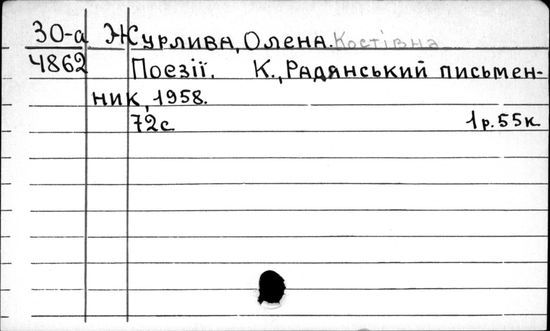 30-а Журлива, Олена. Костівна
4862 Поезії. К., Радянський письмен-
ник, 1958.
72с. 1р.55к.